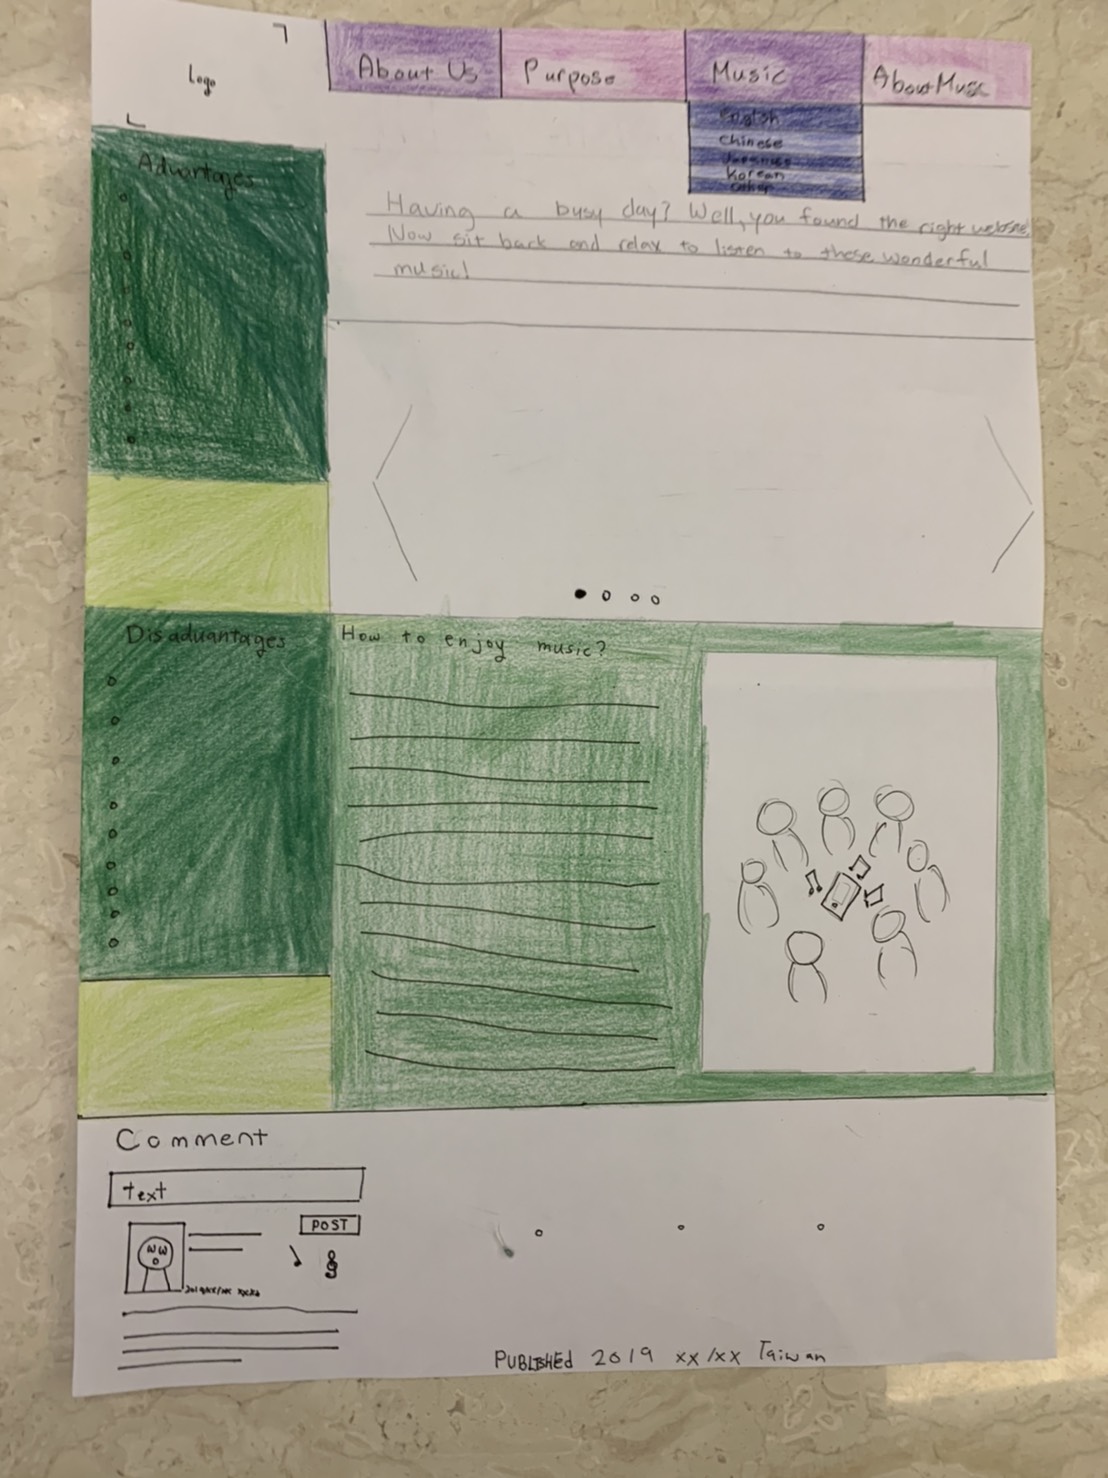 Logo
About Us
Purpose
Music
About Music
English
Chinese
Japanese
Korean
Having a busy day? Well, you found the right website.
Now sit back and relax to listen to these wonderful
music!
Advantages
Disadvantages
How to enjoy music?
Comment
text
POST
PUBLISHEd 2019 xx/xx Taiwan